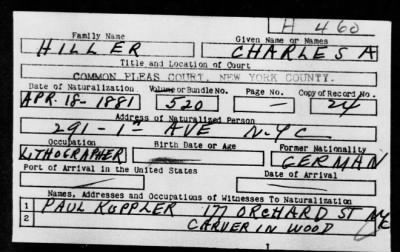 H 460
Family Name Given Name or Names
HILLER CHARLES A
Title and Location of Court
COMMON PLEAS COURT, NEW YORK COUNTY.
Date of Naturalization Volume or Bundle No. Page No. Copy of Record No.
APR. 18- 1881 520 — 24
Address of Naturalized Person
291 - 1ST AVE N.Y.C
Occupation Birth Date or Age Former Nationality
LITHOGRAPHER — GERMAN
Port of Arrival in the United States Date of Arrival
Names, Addresses and Occupations of Witnesses To Naturalization
1 PAUL KUPPLER 177 ORCHARD ST NYC
2 CARVER IN WOOD